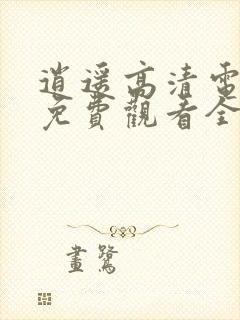 逍遥高清電
免費觀看全
畫鷺